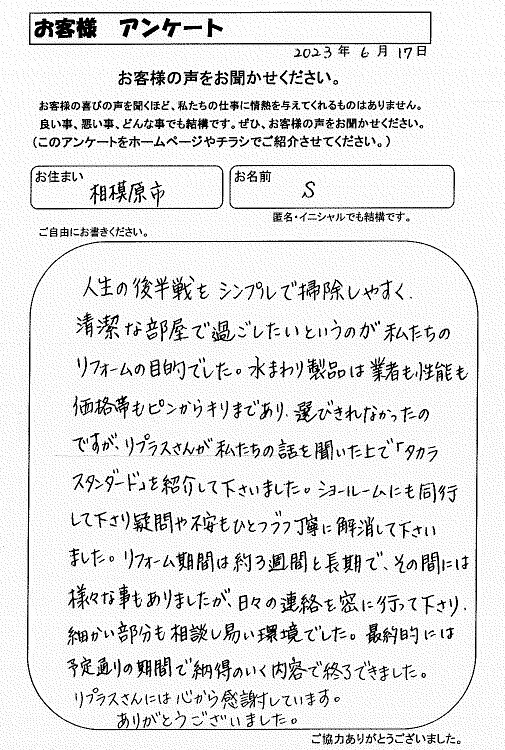 お客様 アンケート
2023年 6月 17日
お客様の声をお聞かせください。
お客様の喜びの声を聞くほど、私たちの仕事に情熱を与えてくれるものはありません。
良い事、悪い事、どんな事でも結構です。ぜひ、お客様の声をお聞かせください。
(このアンケートをホームページやチラシでご紹介させてください。)
お住まい 相模原市
お名前 S
匿名・イニシャルでも結構です。
ご自由にお書きください。
人生の後半戦を シンプルで掃除しやすく、
清潔な部屋で過ごしたいというのが 私たちの
リフォームの目的でした。水まわり製品は業者も性能も
価格帯もピンからキリまであり、選びきれなかったの
ですが、リプラスさんが私たちの話を聞いた上で「タカラ
スタンダード」を紹介して下さいました。ショールームにも同行
して下さり疑問や不安もひとつづつ丁寧に解消して下さい
ました。リフォーム期間は約3週間と長期で、その間には
様々な事もありましたが、日々の連絡を密に行って下さり、
細かい部分も相談し易い環境でした。最終的には
予定通りの期間で納得のいく内容で終了できました。
リプラスさんには心から感謝しています。
ありがとうございました。
ご協力ありがとうございました。